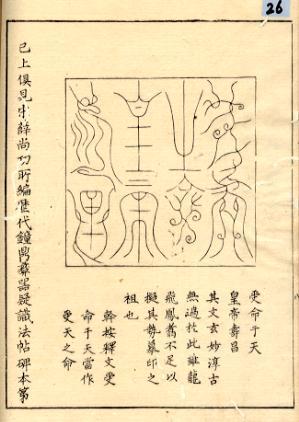 26
受命于天
皇帝壽昌
其文玄妙淳古
無過於此雖龍
飛鳳翥不足以
擬其勢摹印之
祖也
幹按釋文受
命于天當作
受天之命
已上俱見宋薛尚功所編歷代鐘鼎彝器欵識法帖碑本第